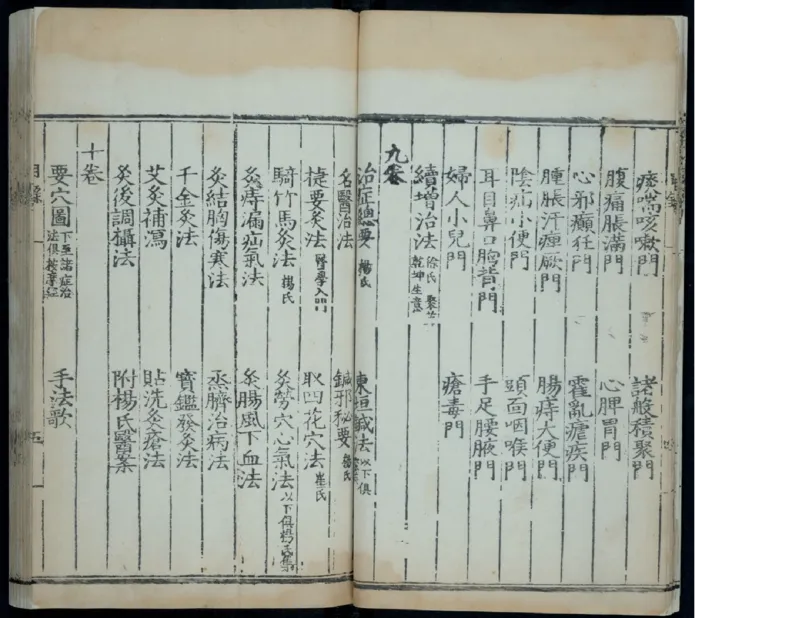 痰喘咳嗽門　諸般積聚門
腹痛脹滿門　心脾胃門
心邪癲狂門　霍亂瘧疾門
腫脹汗痺厥門　腸痔大便門
陰疝小便門　頭面咽喉門
耳目鼻口胸背門　手足腰腋門
婦人小兒門　瘡毒門
續增治法　徐氏　聚英　乾坤生意
九卷
治症總要　楊氏　東垣鍼法　以下俱
名醫治法　鍼邪秘要　楊氏
捷要灸法　醫學入門　取四花穴法　崔氏
騎竹馬灸法　楊氏　灸勞穴心氣法　以下俱楊氏集
灸痔漏疝氣法　灸腸風下血法
灸結胸傷寒法　烝臍治病法
千金灸法　寶鑑發灸法
艾灸補瀉　貼洗灸瘡法
灸後調攝法　附楊氏醫案
十卷
要穴圖　下至諸症治法俱按摩經　手法歌
目錄　五